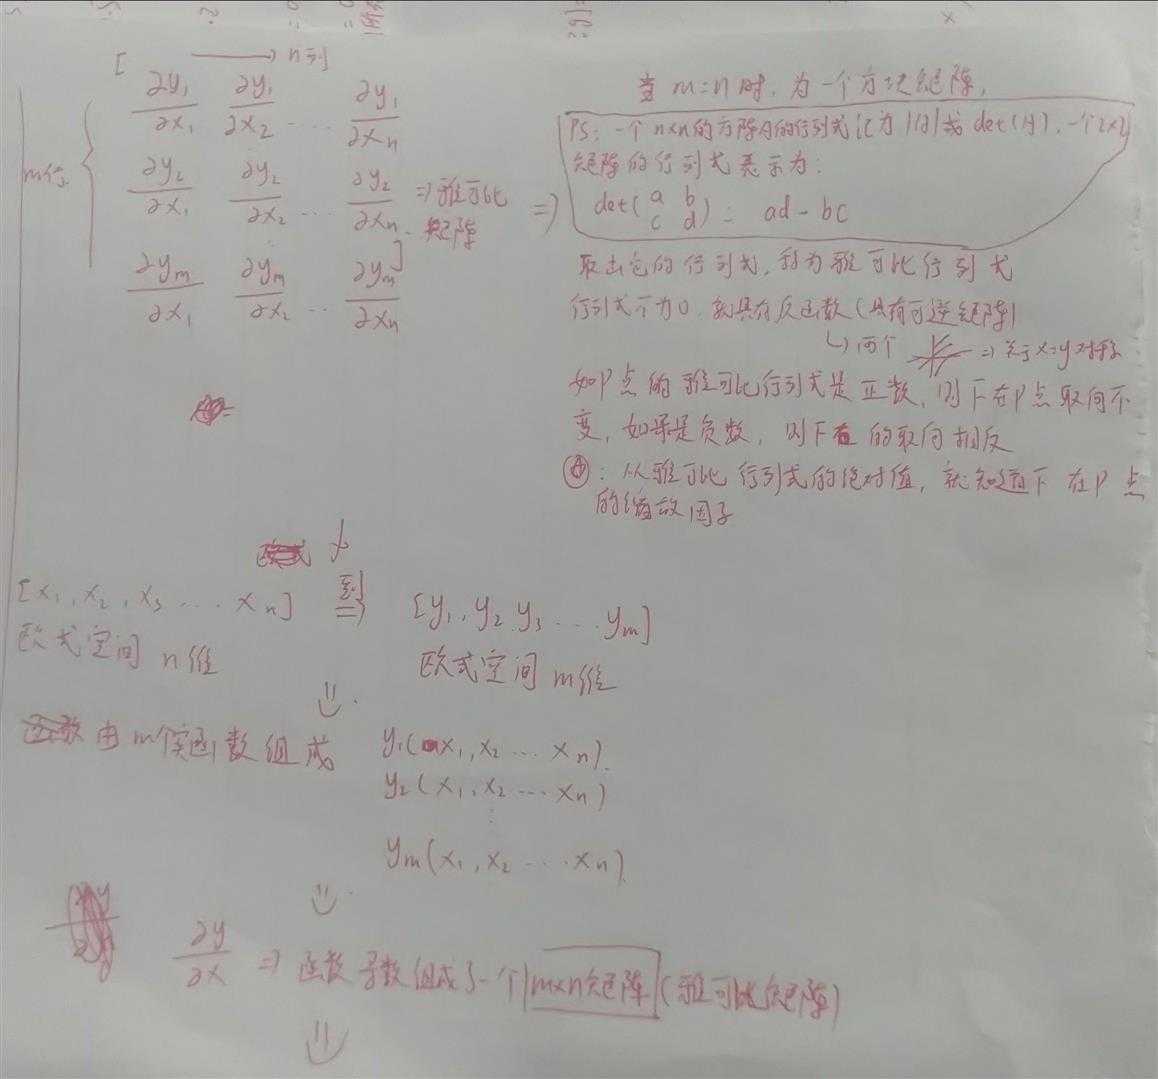 [ → n列
∂y₁/∂x₁ ∂y₁/∂x₂ ... ∂y₁/∂xₙ
m行 { ∂y₂/∂x₁ ∂y₂/∂x₂ ... ∂y₂/∂xₙ ⇒ 雅可比矩阵 ⇒
∂yₘ/∂x₁ ∂yₘ/∂x₂ ... ∂yₘ/∂xₙ ]
当 m=n 时, 为一个方块矩阵,
PS: 一个 n×n 的方阵A的行列式记为 |A| 或 det(A), 一个2×2
矩阵的行列式表示为:
det(a b
c d) = ad - bc
取出它的行列式, 称为雅可比行列式
行列式不为0, 就具有反函数(具有可逆矩阵)
↳ 两个 ⇒ 关于x=y对称
如P点的雅可比行列式是正数, 则F在P点取向不
变, 如果是负数, 则F在的取向相反
: 从雅可比行列式的绝对值, 就知道F在P点
的缩放因子
[x₁, x₂, x₃ ... xₙ] 到 ⇒ [y₁, y₂ y₃ ... yₘ]
欧式空间 n维 欧式空间 m维
⇓
由m个实函数组成 y₁(x₁, x₂ ... xₙ).
y₂(x₁, x₂ ... xₙ)
⋮
yₘ(x₁, x₂ ... xₙ).
⇓
∂y/∂x ⇒ 函数导数组成了一个 m×n矩阵 (雅可比矩阵)
⇓